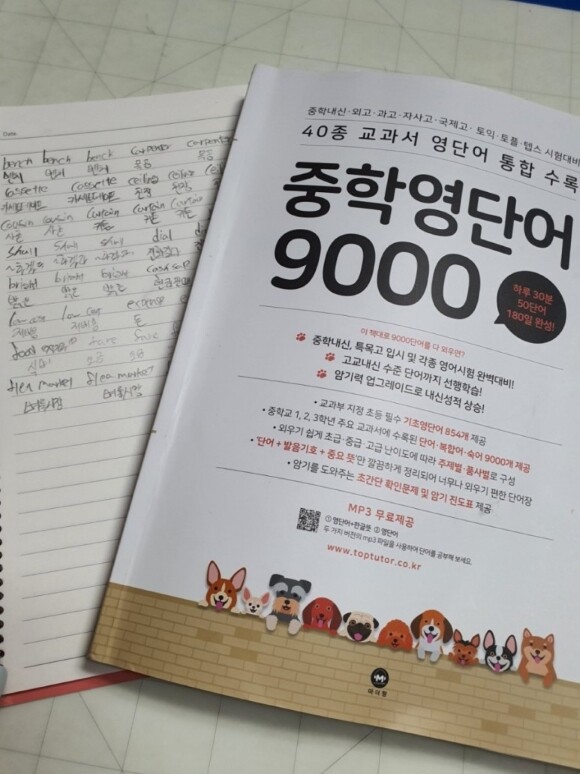 Date.
bench bench bench carpenter carpenter
벤치 벤치 벤치 목공 목공
cassette cassette ceiling ceiling
카세트테이프 천장
cousin cousin curtain curtain curtain
사촌 사촌 커튼 커튼 커튼
shall shall shall dial
bright bright bright
밝은 밝은 밝은
low car low car
flea market flea market
벼룩시장 벼룩시장
중학내신·외고·과고·자사고·국제고·토익·토플·텝스 시험대비
40종 교과서 영단어 통합 수록
중학영단어
9000
하루 30분
50단어
180일 완성!
이 책대로 9000단어를 다 외우면?
중학내신, 특목고 입시 및 각종 영어시험 완벽대비!
고교내신 수준 단어까지 선행학습!
암기력 업그레이드로 내신성적 상승!
• 교육부 지정 초등 필수 기초영단어 854개 제공
• 중학교 1, 2, 3학년 주요 교과서에 수록된 단어·복합어·숙어 9000개 제공
• 외우기 쉽게 초급·중급·고급 난이도에 따라 주제별·품사별로 구성
• '단어 + 발음기호 + 중요 뜻'만 깔끔하게 정리되어 너무나 외우기 편한 단어장
• 암기를 도와주는 초간단 확인문제 및 암기 진도표 제공
MP3 무료제공
① 영단어+한글뜻 ② 영단어
두 가지 버전의 mp3 파일을 사용하여 단어를 공부해 보세요.
www.toptutor.co.kr
마더텅